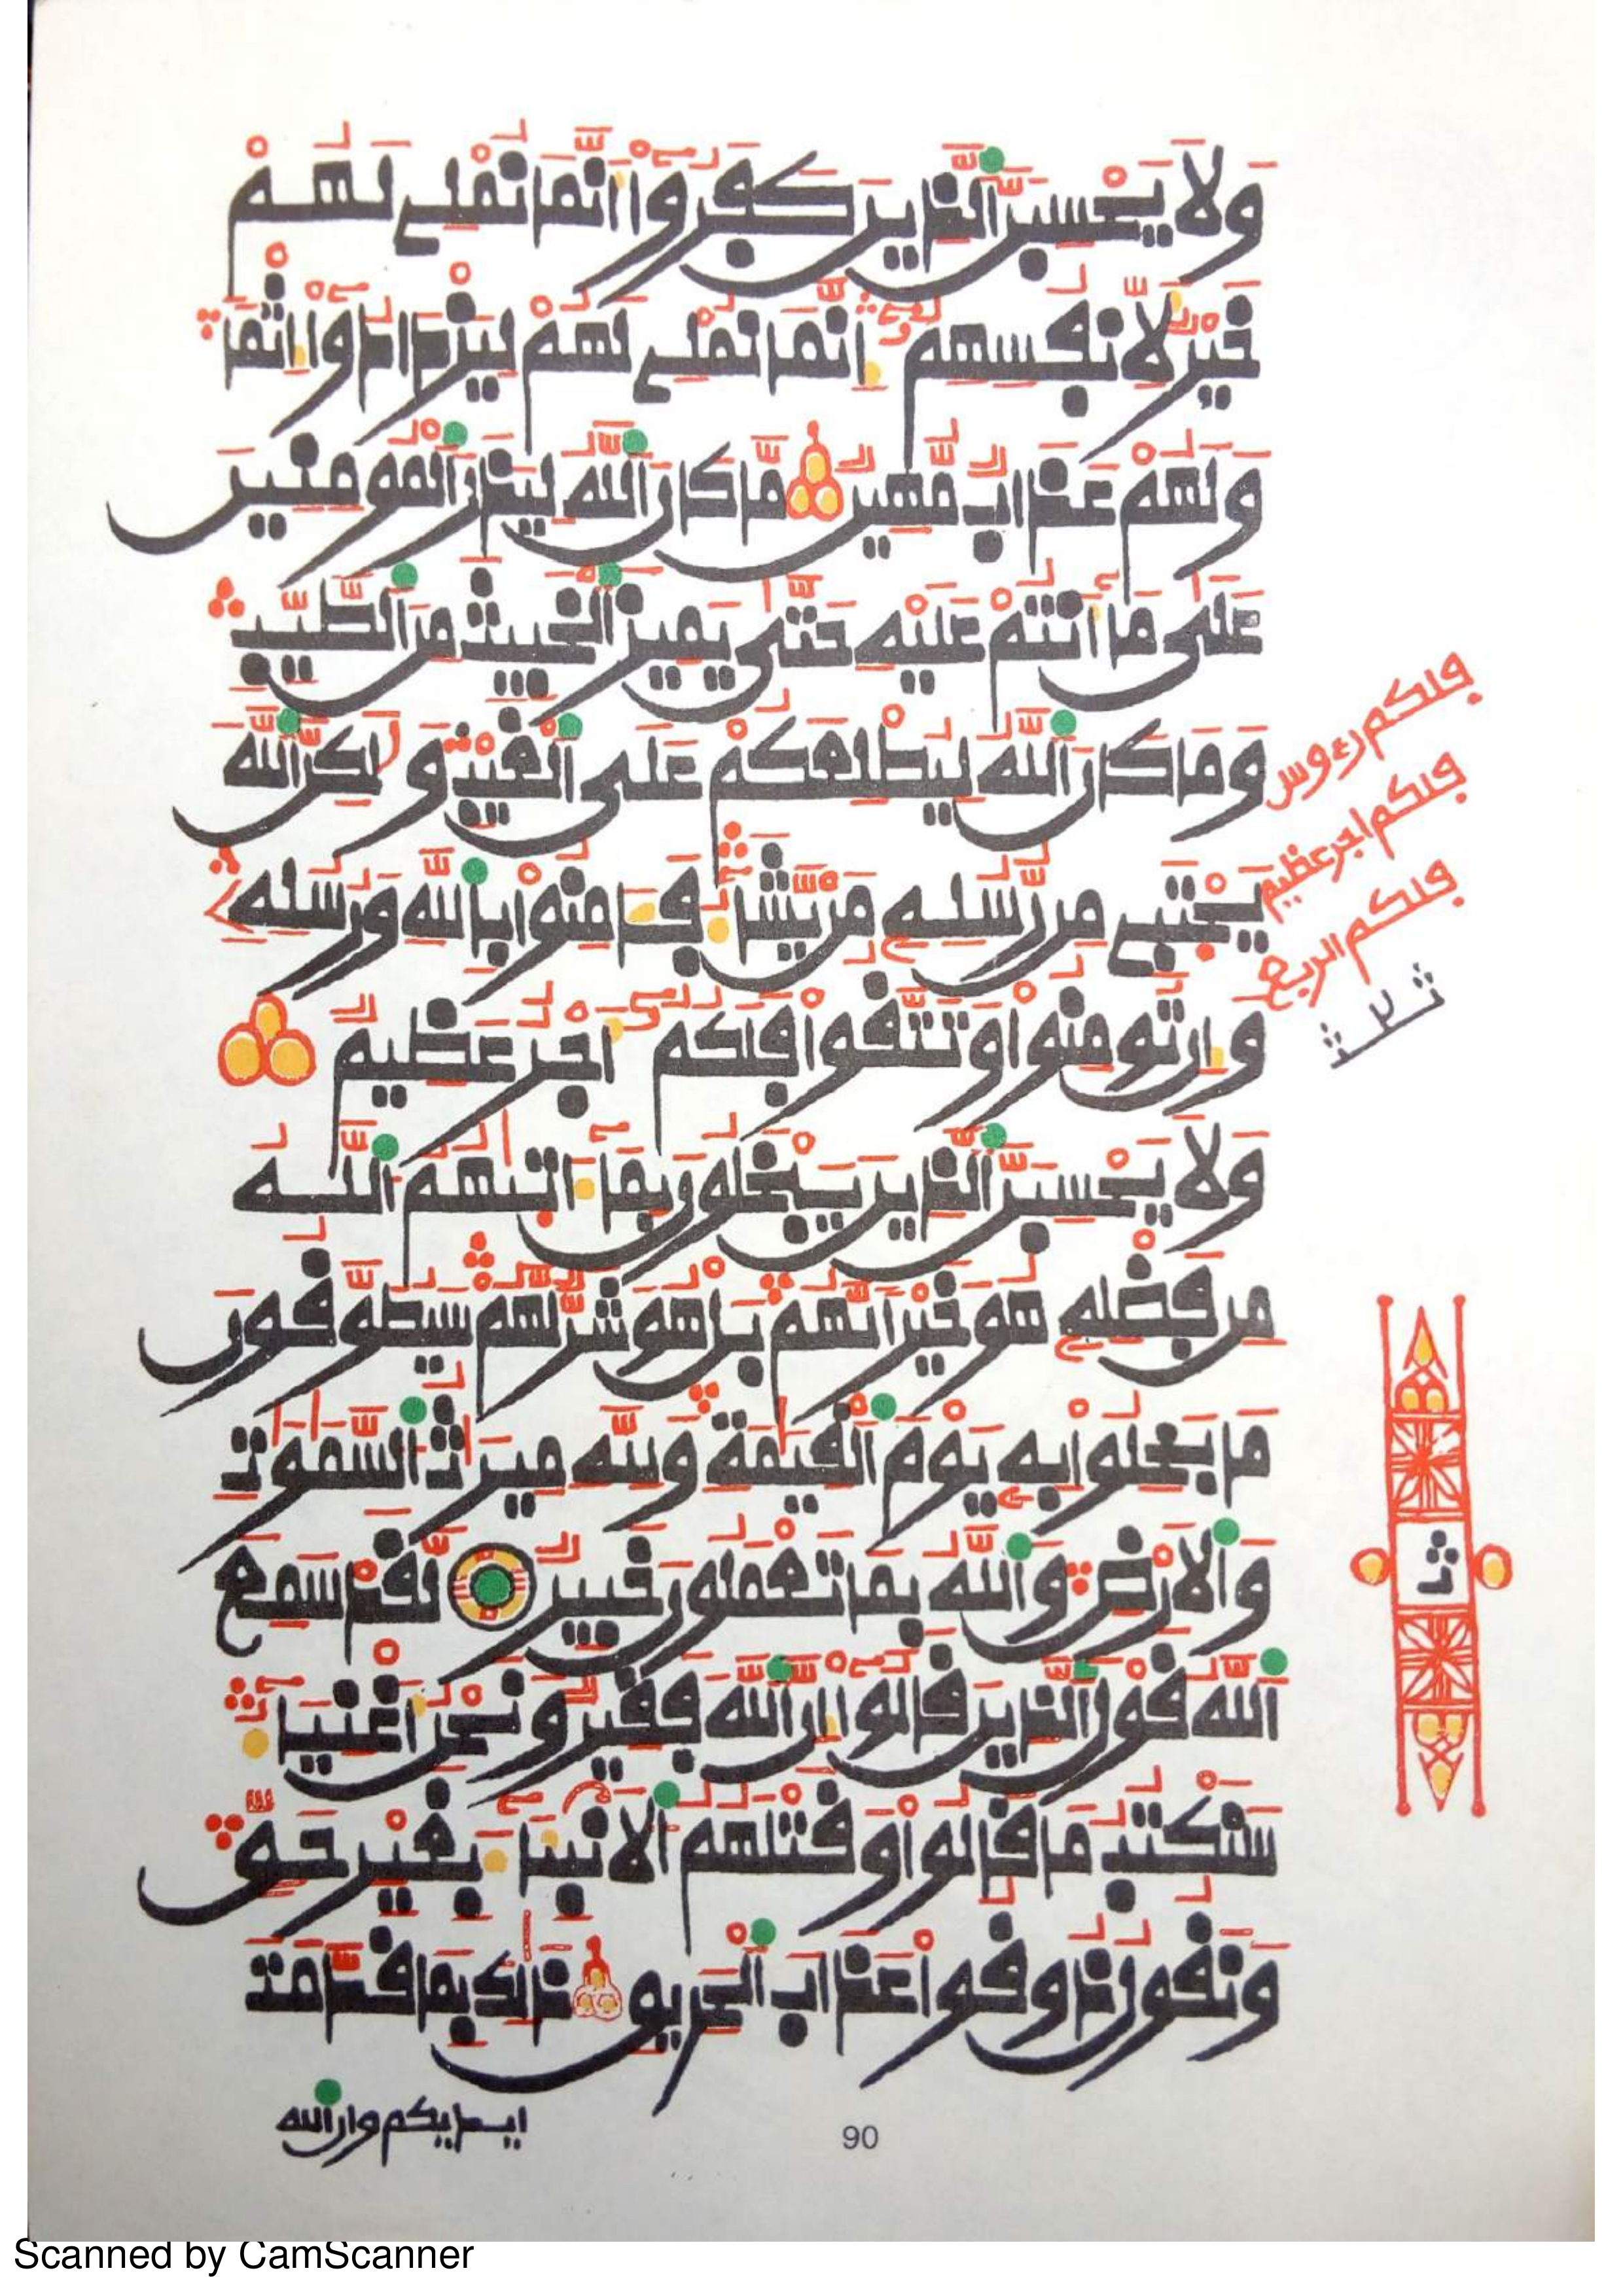 وَلَا يَحْسِبَنَّ ٱلذِينَ كَفَرُوٓاْ أَنَّمَا نُمْلِے لَهُمْ
خَيْرٞ لِّأَنفُسِهِمُۥٓ إِنَّمَا نُمْلِے لَهُمْ لِيَزْدَادُوٓاْ إِثْماٗ
وَلَهُمْ عَذَابٞ مُّهِينٞ مَّا كَانَ ٱللَّهُ لِيَذَرَ ٱلْمُومِنِينَ
عَلَىٰ مَآ أَنتُمْ عَلَيْهِ حَتَّىٰ يَمِيزَ ٱلْخَبِيثَ مِنَ ٱلطَّيِّبِ
وَمَا كَانَ ٱللَّهُ لِيُطْلِعَكُمْ عَلَى ٱلْغَيْبِ وَلَٰكِنَّ ٱللَّهَ
يَجْتَبِے مِن رُّسُلِهِۦ مَنْ يَّشَآءُ فَـَٔامِنُواْ بِاللَّهِ وَرُسُلِهِۦ
وَإِن تُومِنُواْ وَتَتَّقُواْ فَلَكُمُۥٓ أَجْرٌ عَظِيمٞ
وَلَا يَحْسِبَنَّ ٱلذِينَ يَبْخَلُونَ بِمَآ ءَاتٜىٰهُمُ ٱللَّهُ
مِن فَضْلِهِۦ هُوَ خَيْراٗ لَّهُمْ بَلْ هُوَ شَرّٞ لَّهُمْ سَيُطَوَّقُونَ
مَا بَخِلُواْ بِهِۦ يَوْمَ ٱلْقِيَٰمَةِ وَلِلَّهِ مِيرَٰثُ ٱلسَّمَٰوَٰتِ
وَٱلْأَرْضِ وَٱللَّهُ بِمَا تَعْمَلُونَ خَبِيرٞ لَّقَدْ سَمِعَ
ٱللَّهُ قَوْلَ ٱلذِينَ قَالُوٓاْ إِنَّ ٱللَّهَ فَقِيرٞ وَنَحْنُ أَغْنِيَآءُ
سَنَكْتُبُ مَا قَالُواْ وَقَتْلَهُمُ ٱلْأَنۢبِئَآءَ بِغَيْرِ حَقّٖ
وَنَقُولُ ذُوقُواْ عَذَابَ ٱلْحَرِيقِ ذَٰلِكَ بِمَا قَدَّمَتَ
ايديكم وان ٱلله
فلكم رءوس
فلكم اجر عظيم
فلكم الربع
ثلث
ثمن
90
Scanned by CamScanner